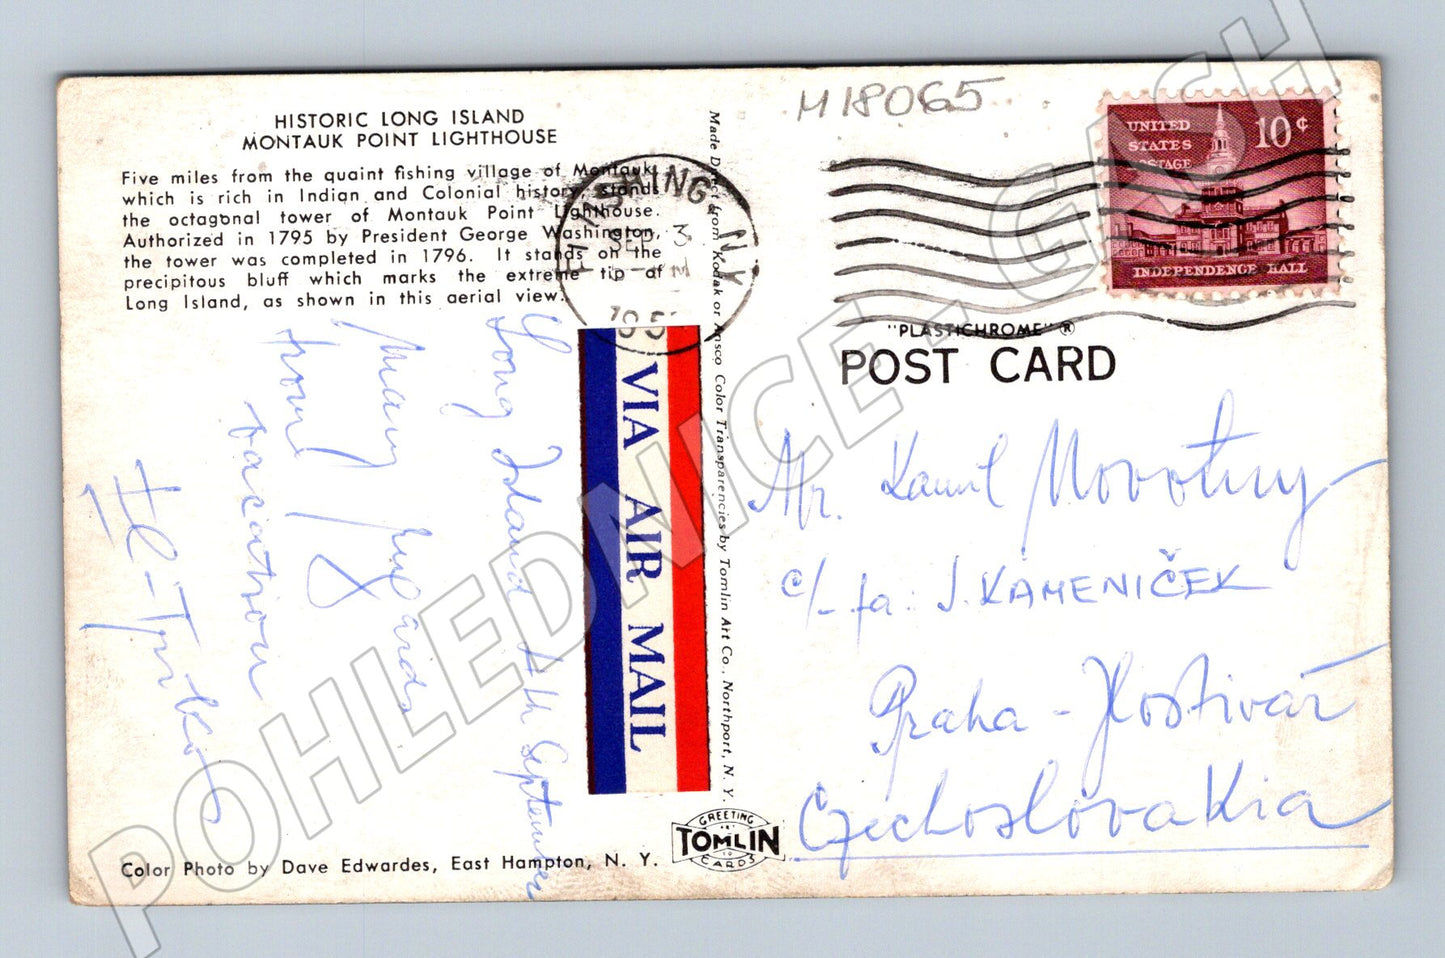 HISTORIC LONG ISLAND
MONTAUK POINT LIGHTHOUSE
Five miles from the quaint fishing village of Montauk,
which is rich in Indian and Colonial history, stands
the octagonal tower of Montauk Point Lighthouse.
Authorized in 1795 by President George Washington,
the tower was completed in 1796. It stands on the
precipitous bluff which marks the extreme tip of
Long Island, as shown in this aerial view.
Long Island 4th September
Many regards
from
vacation
Color Photo by Dave Edwardes, East Hampton, N. Y.
Made Direct from Kodak or Ansco Color Transparencies by Tomlin Art Co., Northport, N. Y.
SEP 3
N.Y.
VIA AIR MAIL
GREETING
TOMLIN
CARDS
M18065
UNITED
STATES
POSTAGE
10¢
INDEPENDENCE HALL
"PLASTICHROME" ®
POST CARD
Mr. Kamil Novotny
c/- fa: J. KAMENIČEK
Praha - Hostivař
Czechoslovakia
POHLEDNICE - GASH